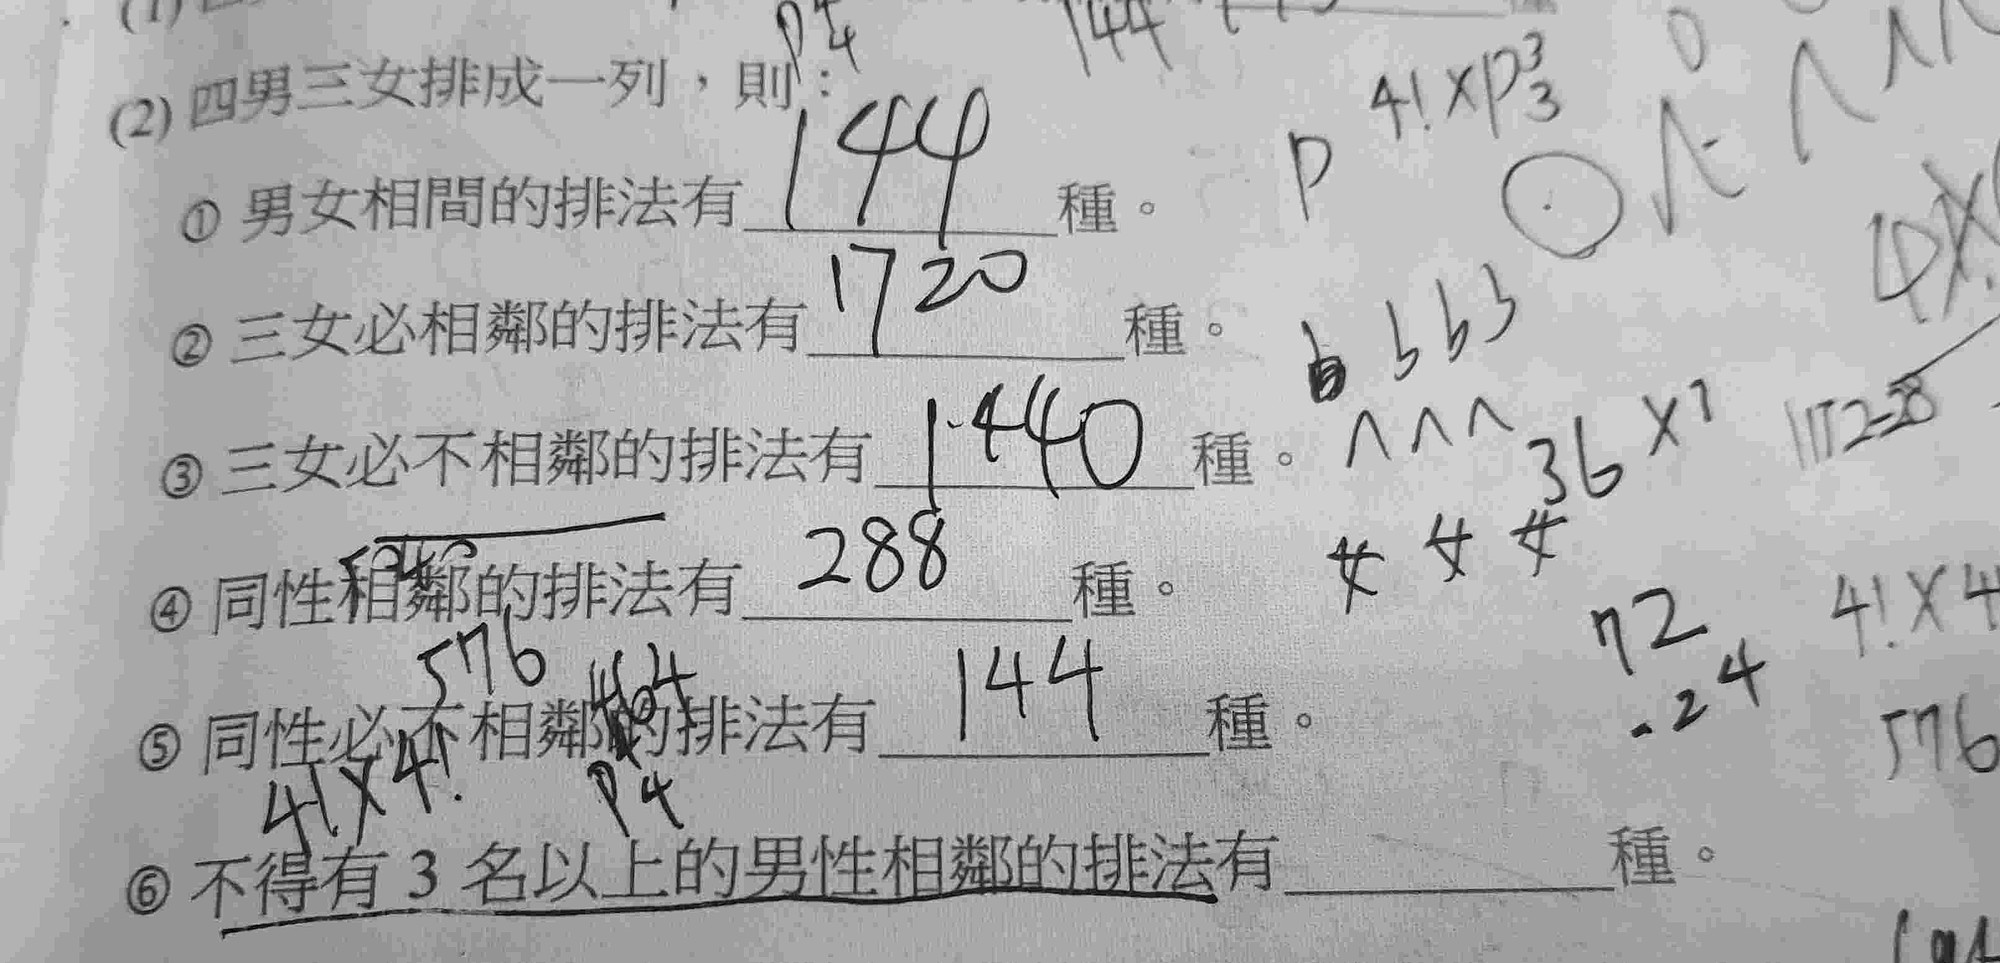 (1)
P 4 4
144
(2) 四男三女排成一列，則：
4! × P 3 3
① 男女相間的排法有 144 種。
P
② 三女必相鄰的排法有 1720 種。
b b b
③ 三女必不相鄰的排法有 1440 種。
36 ×
女 女 女
④ 同性相鄰的排法有 288 種。
576
72
4! × 4
⑤ 同性必不相鄰的排法有 144 種。
24
576
4! × 4!
P 4
⑥ 不得有 3 名以上的男性相鄰的排法有 種。